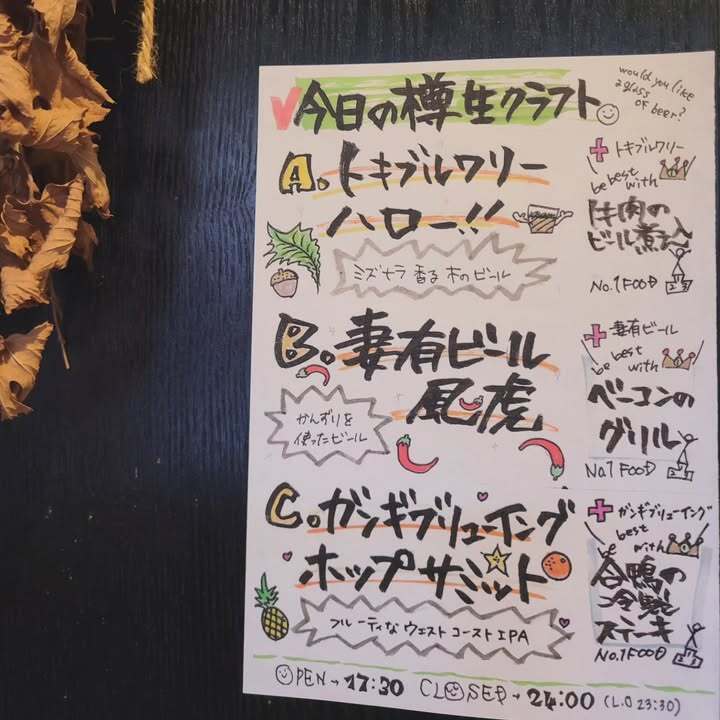 今日の樽生クラフト
would you like
a glass
of beer?
A. トキブルワリー
ハロー!!
ミズナラ香る木のビール
+ トキブルワリー
be best with
牛肉の
ビール煮込み
No.1 FOOD
B. 妻有ビール
風虎
かんずりを
使ったビール
+ 妻有ビール
be best with
ベーコンの
グリル
No.1 FOOD
C. ガンギブリューイング
ホップサミット
フルーティなウェストコーストIPA
+ ガンギブリューイング
be best with
合鴨の
冷製
ステーキ
No.1 FOOD
OPEN→17:30 CLOSED→24:00 (L.O 23:30)